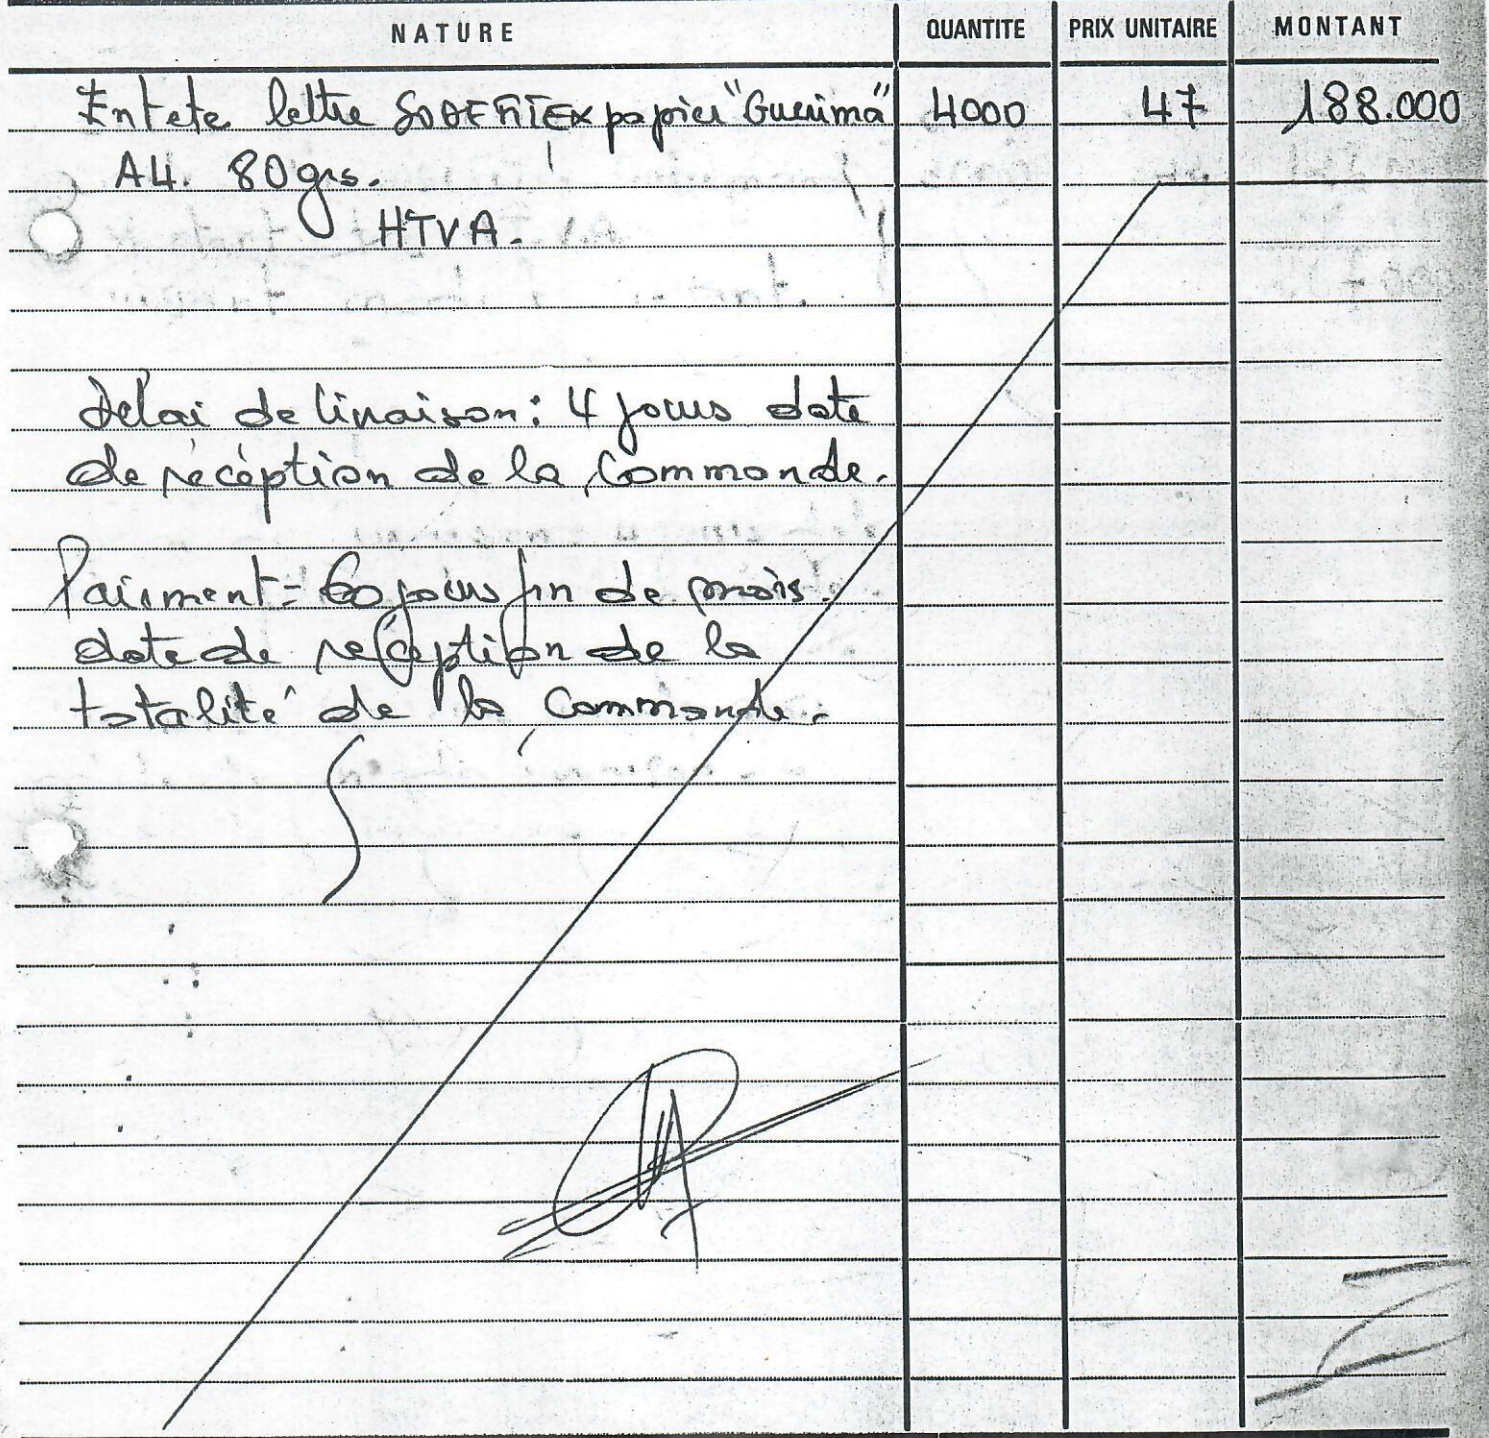 NATURE QUANTITE PRIX UNITAIRE MONTANT
Entete lettre papier "Guerimà" 4000 47 188.000
A4. 80grs.
HTVA.
Delai de livraison: 4 jours date
de réception de la Commande.
Paiement= 60 jours fin de mois.
date de reception de la
totalité de la Commande.